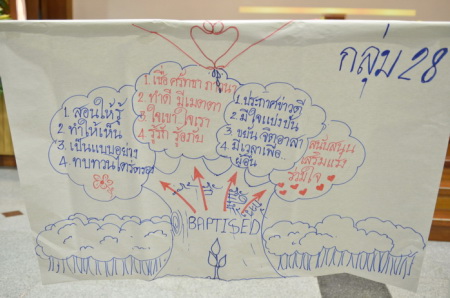 กลุ่ม 28
1. สอนให้รู้
2. ทำให้เห็น
3. เป็นแบบอย่าง
4. ทบทวน
1. เชื่อ ศรัทธา ภาวนา
2. ทำดี มีเมตตา
3. ใจเขา ใจเรา
4. รู้รัก รู้อภัย
1. ประกาศข่าวดี
2. มีใจแบ่งปัน
3. ขยัน จิตอาสา
4. มีเวลาเพื่อ
ผู้อื่น
สนับสนุน
เสริมแรง
ร่วมใจ
BAPTISED